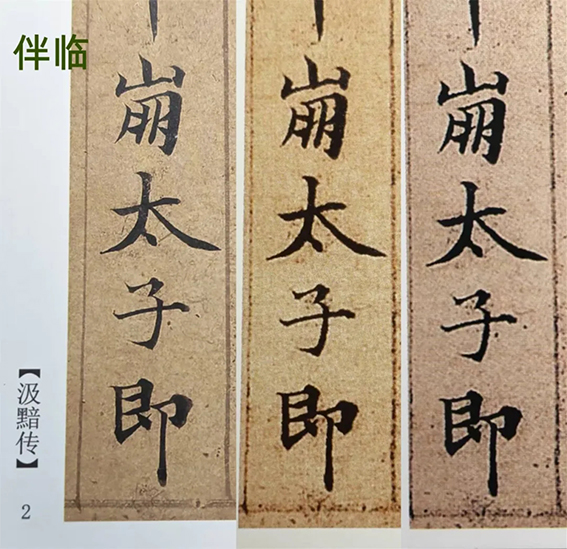 伴临
崩太子即
崩太子即
崩太子即
【汲黯传】
2